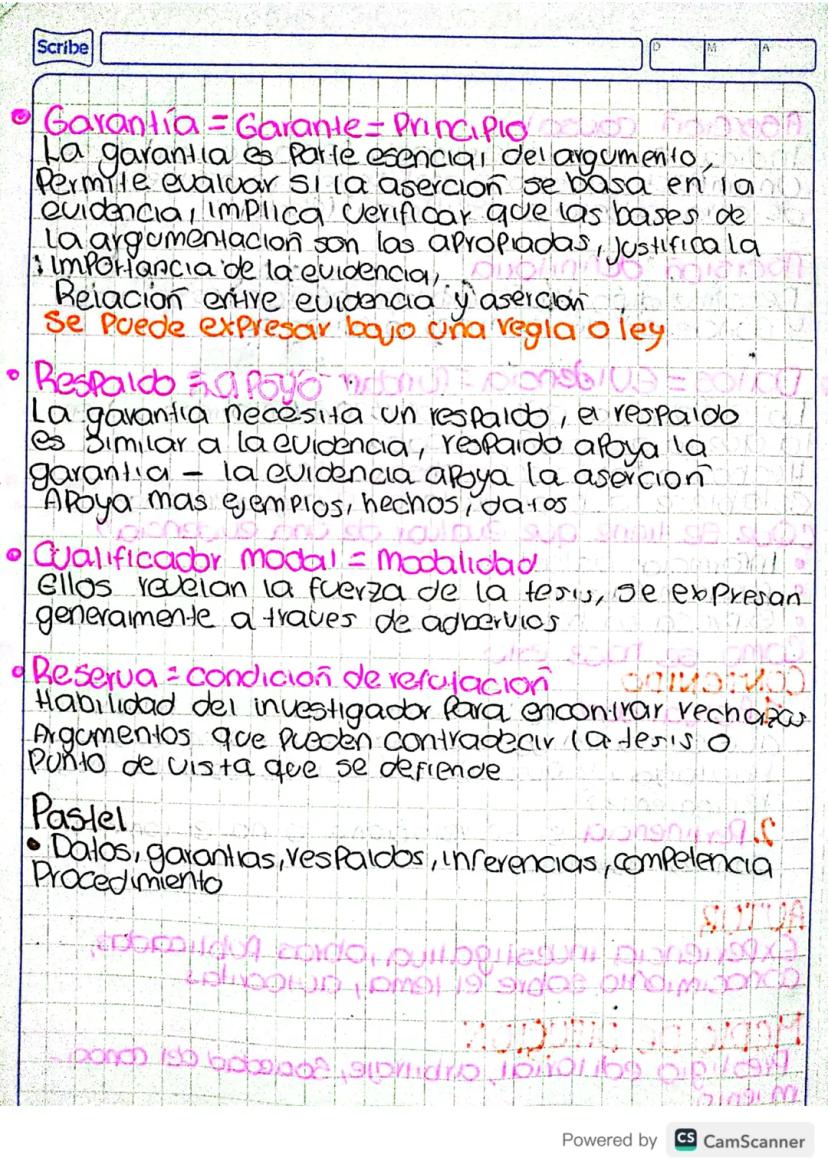 Scribe
D M A
• Garantía = Garante = Principio
La garantia es parte esencial del argumento,
Permite evaluar si la aserción se basa en la
evidencia, implica verificar que las bases de
la argumentación son las apropiadas, justifica la
importancia de la evidencia,
Relación entre evidencia y aserción
se puede expresar bajo una regla o ley
• Respaldo = apoyo
La garantia necesita un respaldo, el respaldo
es similar a la evidencia, respaldo apoya la
garantia - la evidencia apoya la aserción
Apoya mas ejemplos, hechos, datos
• Cualificador modal = Modalidad
Ellos revelan la fuerza de la tesis, se expresan
generalmente a traves de adbervios
• Reserva = condición de refutación
Habilidad del investigador para encontrar rechazos
Argumentos que pueden contradecir la tesis o
punto de vista que se defiende
Pastel
• Datos, garantias, respaldos, inferencias, competencia
Procedimiento
Powered by CS CamScanner